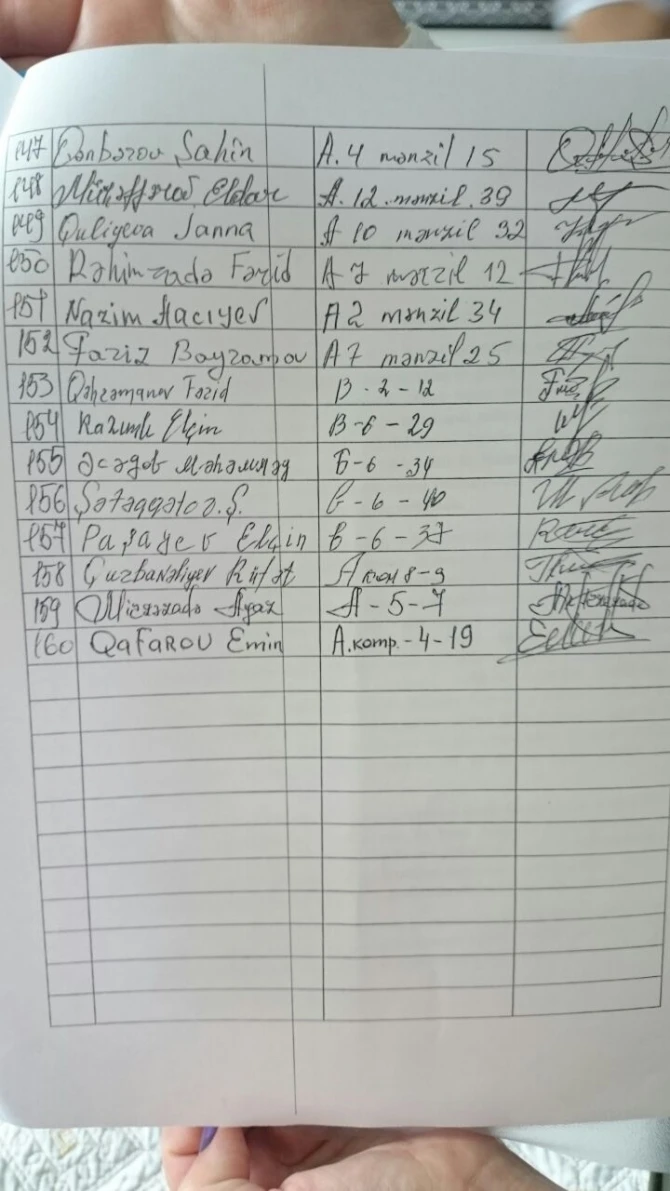 147 Qənbərov Şahin A.4 mənzil 15
148 Eldar A.12 mənzil 39
149 Quliyeva Janna A 10 mənzil 32
150 Rəhimzadə Fərid A 7 mənzil 12
151 Nazim Hacıyev A 2 mənzil 34
152 Fariz Bayramov A7 mənzil 25
153 Qəhrəmanov Fərid B-2-12
154 Kazımlı Elçin B-6-29
155 Əsədov Məhəmməd Б-6-34
156 Şəfəqqətov.Ş. B-6-40
157 Paşayev Elçin B-6-37
158 Qurbanəliyev Rüfət A 8-9
159 Mirzəzadə Ayaz A-5-7
160 QaFaROV Emin A.komp.-4-19